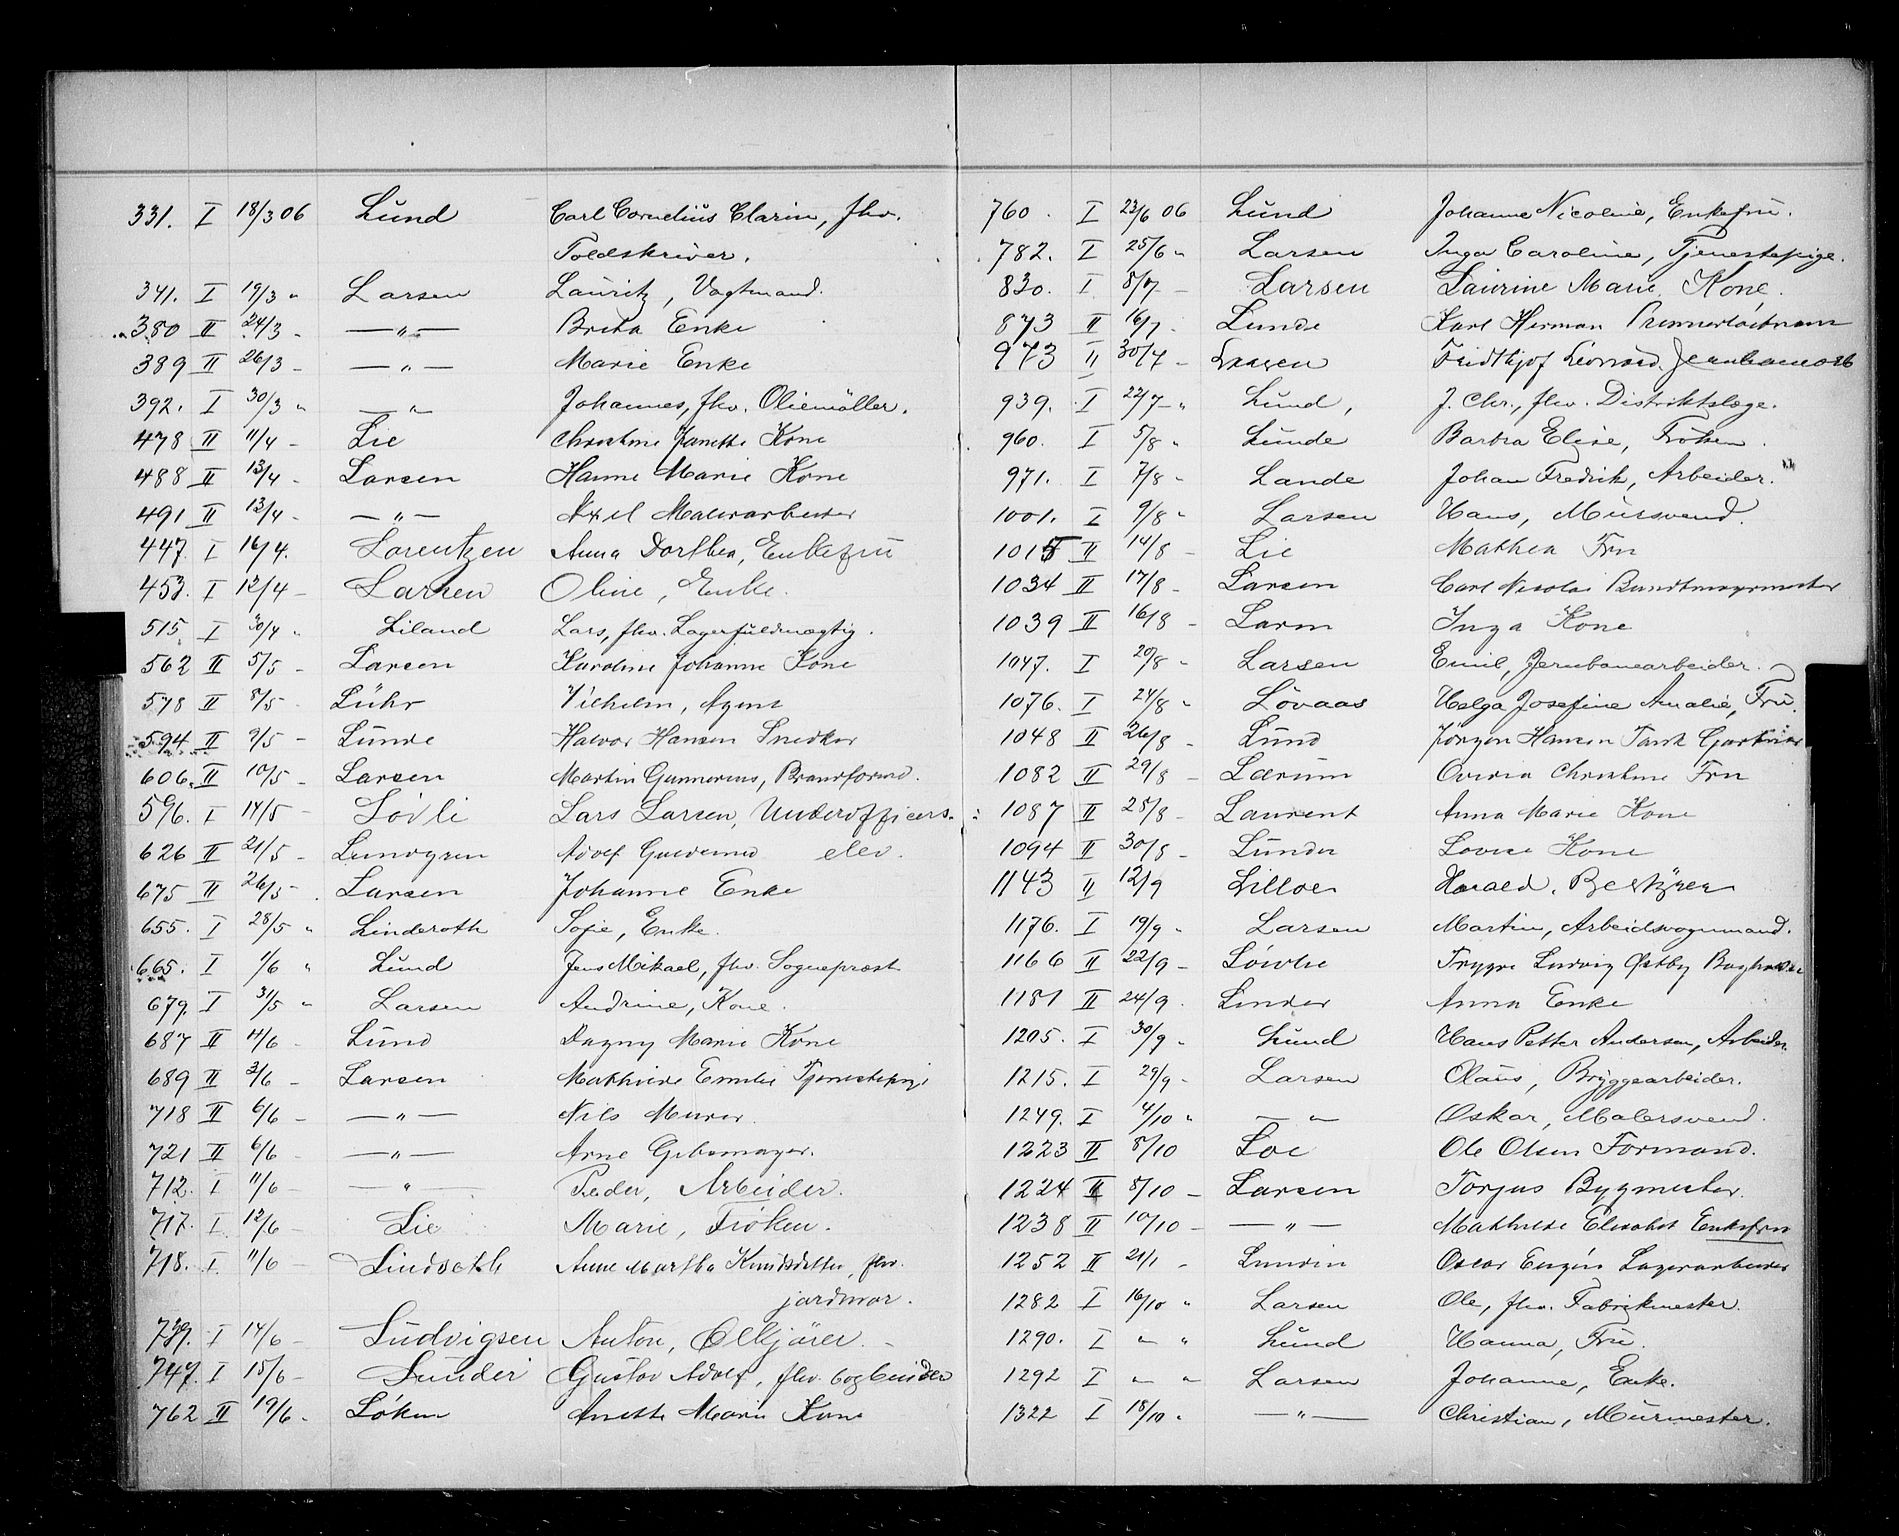 331. I 18/3 06 Lund Carl Cornelius Clarin, fhv.
Toldskriver.
341. I 19/3 " Larsen Lauritz, Vagtmand.
380 II 24/3 - —"— Brita Enke
389 II 26/3 - —"— Marie Enke
392. I 30/3 " —"— Johannes, fhv. Oliemöller.
478 II 11/4 - Lie Christine Janette Kone
488 II 13/4 - Larsen Hanne Marie Kone
491 II 13/4 - —"— Axel Malerarbeider
447. I 16/4. Lorentzen Anna Dorthea, Enkefru
453. I 12/4 - Larsen Oline, Enke.
515. I 30/4 " Liland Lars, fhv. Lagerfuldmægtig.
562 II 5/5 - Larsen Karoline Johanne Kone
578 II 8/5 - Lühr Vilhelm, Agent
594 II 9/5 - Lunde Halvor Hansen Snedker
606. II 10/5 - Larsen Martin Gunnerius, Brandformd.
596. I 14/5 - Lövli Lars Larsen, Underofficers-
626 II 21/5 - Lundgren Adolf elev.
675 II 26/5 - Larsen Johanne Enke
655. I 28/5 " Linderoth Sofie, Enke.
665. I 1/6 " Lund Jens Mikael, fhv. Sognepræst
679. I 31/5 " Larsen Andrine, Kone.
687 II 11/6 - Lund Dagny Marie Kone
689 II 2/6 - Larsen Mathilde Emilie Tjenestepige
718 II 6/6 - —"— Nils Murer.
721 II 6/6 - —"— Arne Gibsmager.
712. I 11/6 - —"— Peder, Arbeider.
717. I 12/6 - Lie Marie, Fröken.
718. I 11/6 - Lindseth Anne Martha Knudsdatter, fhv.
jordmor.
739. I 14/6 - Ludvigsen Anton, Ölkjörer.
747. I 15/6 - Lunder Gustav Adolf, fhv. bogbinder
762 II 19/6 - Løken Anette Marie Kone
760. I 23/6 06 Lund Johanne Nicoline, Enkefru.
782. I 25/6 " Larsen Inga Caroline, Tjenestepige.
830. I 8/7 - Larsen Laurine Marie, Kone.
873 II 16/7. Lunde Karl Herman Premierløitnant
973 II 30/7 - Larsen Fridthjof Leonard,
939. I 22/7 " Lund, J. Chr., fhv. Distriktslæge.
960. I 5/8 " Lunde Barbra Elise, Fröken.
971. I 7/8 " Lande Johan Fredrik, Arbeider.
1001. I 9/8 " Larsen Hans, Mursvend.
1015 II 14/8 - Lie Mathea Fru
1034 II 17/8 - Larsen Carl Nicolai Bundtmagermester
1039 II 16/8 - Larm Inga Kone
1047. I 20/8 " Larsen Emil, Jernbanearbeider.
1076. I 24/8 " Lövaas Helga Josefine Amalie, Fru.
1048 II 26/8 - Lund Jørgen Hansen Tank Gartner
1082 II 29/8 - Lærum Ovidia Christine Fru
1087 II 25/8 - Laurent Anna Marie Kone
1094 II 30/8 - Lunder Lovise Kone
1143 II 12/9 Lilloe Harald. Bestyrer
1176. I 19/9 " Larsen Martin, Arbeidsvognmand.
1166 II 22/9 - Løvlie Trygve Ludvig Østby
1181 II 24/9. Linder Anna Enke
1205. I 30/9 " Lund Hans Petter Andersen, Arbeider.
1215. I 29/9 - Larsen Olaus, Bryggearbeider.
1249. I 4/10 " —"— Oskar, Malersvend.
1223 II 8/10 Loe Ole Olsen Formand.
1224 II 8/10 - Larsen Torjus Bygmester.
1238 II 10/10 - —"— Mathilde Elisabet Enkefru
1252 II 21/1 - Lundin Oscar Eugén Lagerarbeider
1282 I 16/10 " Larsen Ole, fhv. Fabrikmester.
1290. I " " Lund Hanna, Fru.
1292 I " " Larsen Johanne, Enke.
1322 I 18/10 " —"— Christian, Murmester.